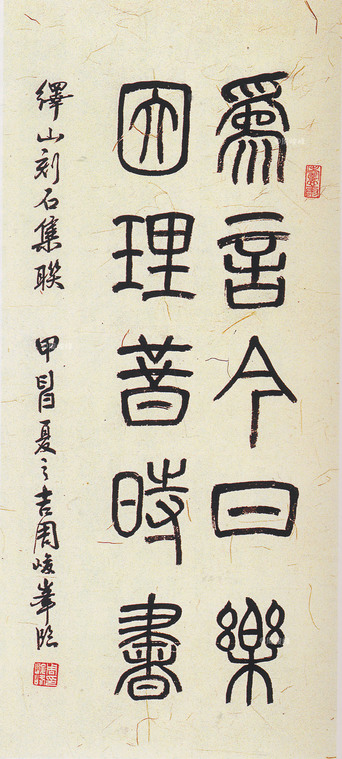 爲言今日樂
因理昔時書
繹山刻石集聯 甲 夏之吉周峻峯临